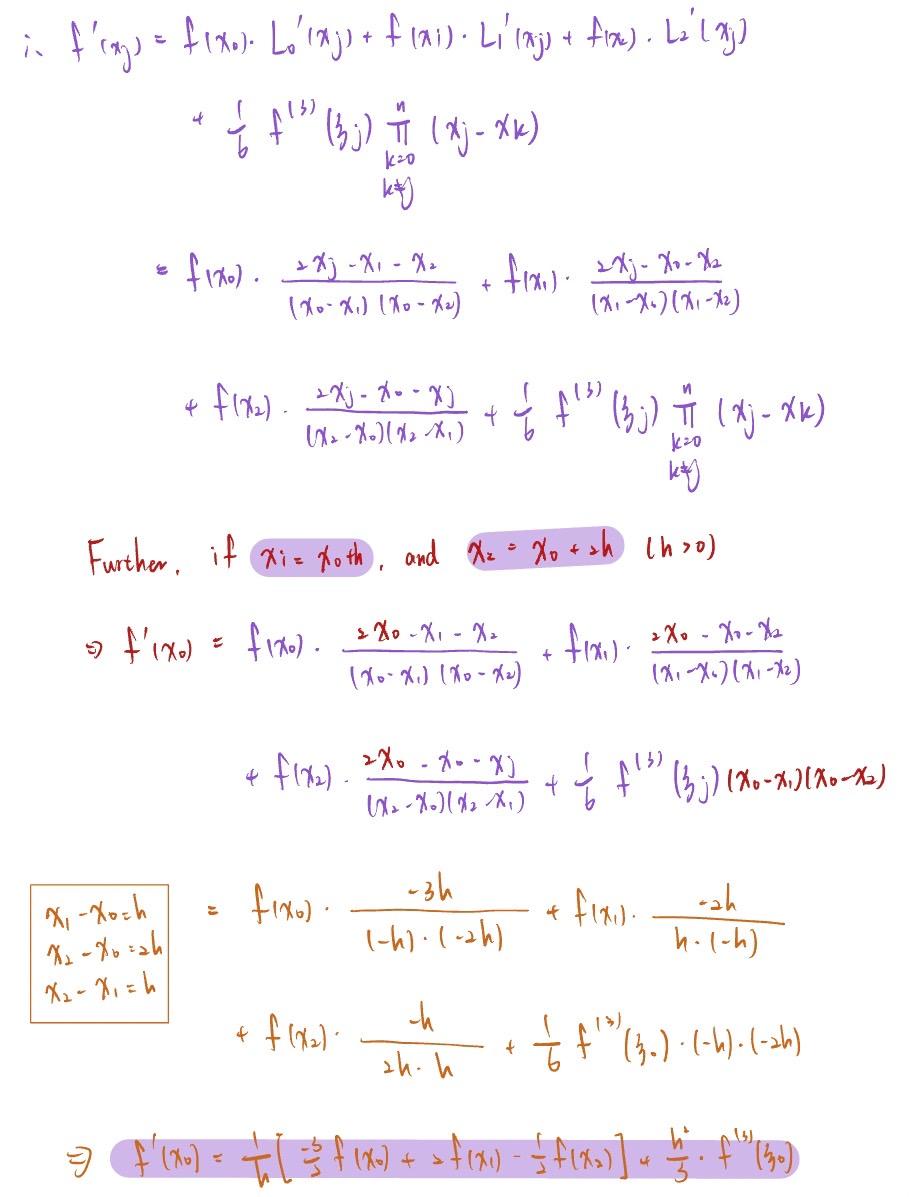 ∴ f'(xj) = f(x0)· L0'(xj) + f(xi)· L1'(xj) + f(x2)· L2'(xj)
+ 1/6 f^(3)(ξj) ∏_{k=0, k≠j}^{n} (xj - xk)
= f(x0)· (2xj - x1 - x2)/((x0 - x1)(x0 - x2)) + f(x1)· (2xj - x0 - x2)/((x1 - x0)(x1 - x2))
+ f(x2)· (2xj - x0 - xj)/((x2 - x0)(x2 - x1)) + 1/6 f^(3)(ξj) ∏_{k=0, k≠j}^{n} (xj - xk)
Further, if xi = x0 + h, and x2 = x0 + 2h (h > 0)
⇒ f'(x0) = f(x0)· (2x0 - x1 - x2)/((x0 - x1)(x0 - x2)) + f(x1)· (2x0 - x0 - x2)/((x1 - x0)(x1 - x2))
+ f(x2)· (2x0 - x0 - xj)/((x2 - x0)(x2 - x1)) + 1/6 f^(3)(ξj)(x0 - x1)(x0 - x2)
x1 - x0 = h
x2 - x0 = 2h
x2 - x1 = h
= f(x0)· (-3h)/((-h)·(-2h)) + f(x1)· (-2h)/(h·(-h))
+ f(x2)· (-h)/(2h·h) + 1/6 f^(3)(ξ0)·(-h)·(-2h)
⇒ f'(x0) = 1/h [ -3/2 f(x0) + 2f(x1) - 1/2 f(x2) ] + h²/3 · f^(3)(ξ0)